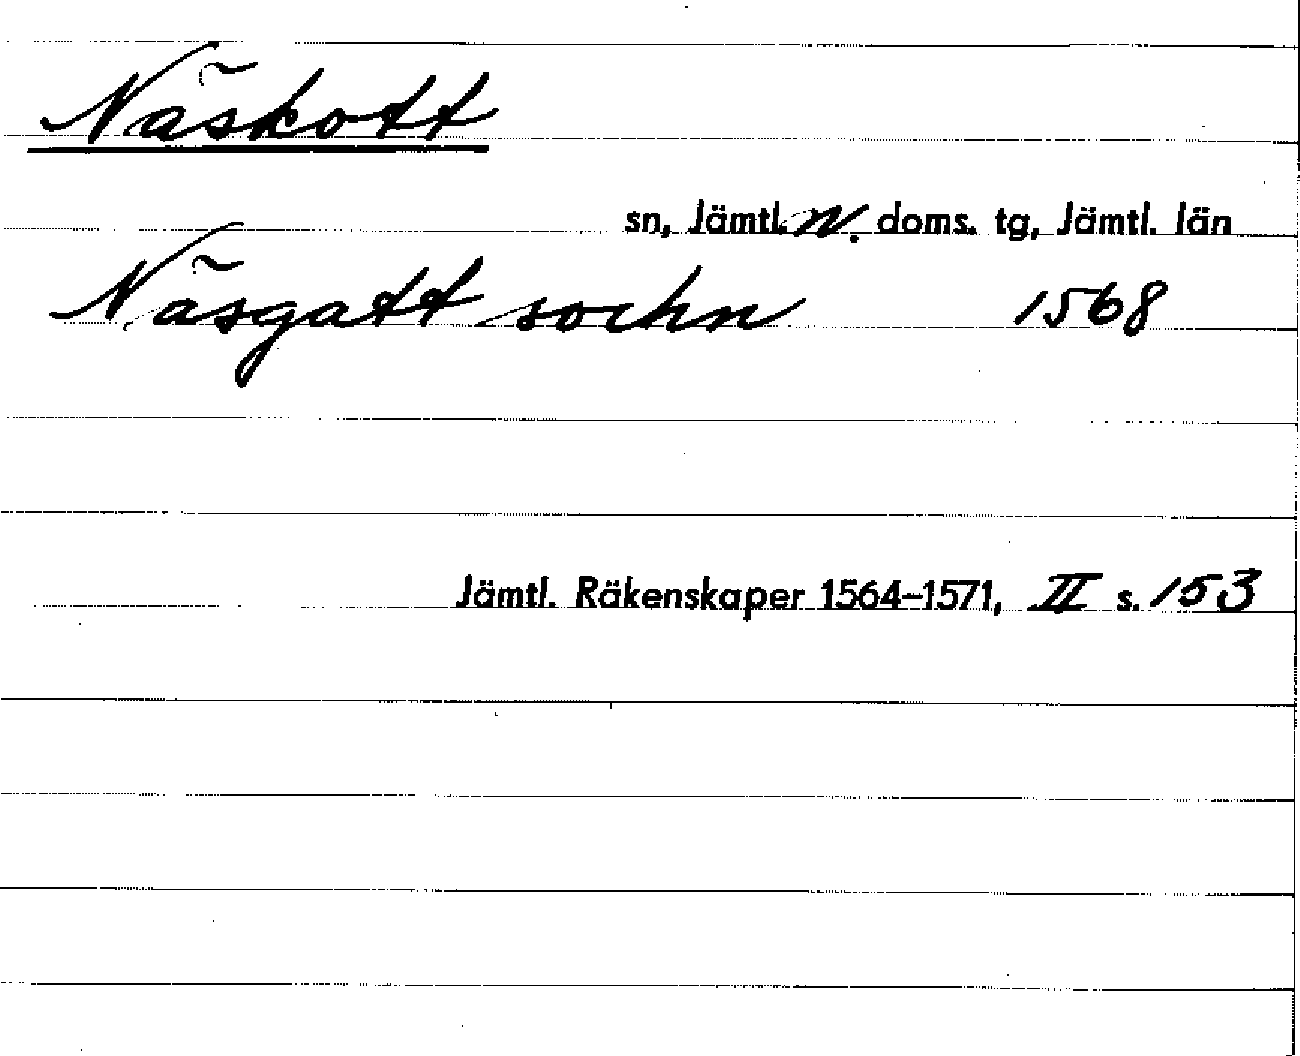 Näskott
sn, Jämtl. n. doms. tg, Jämtl. län
Näsgatt sochn 1568
Jämtl. Räkenskaper 1564–1571, II s. 153